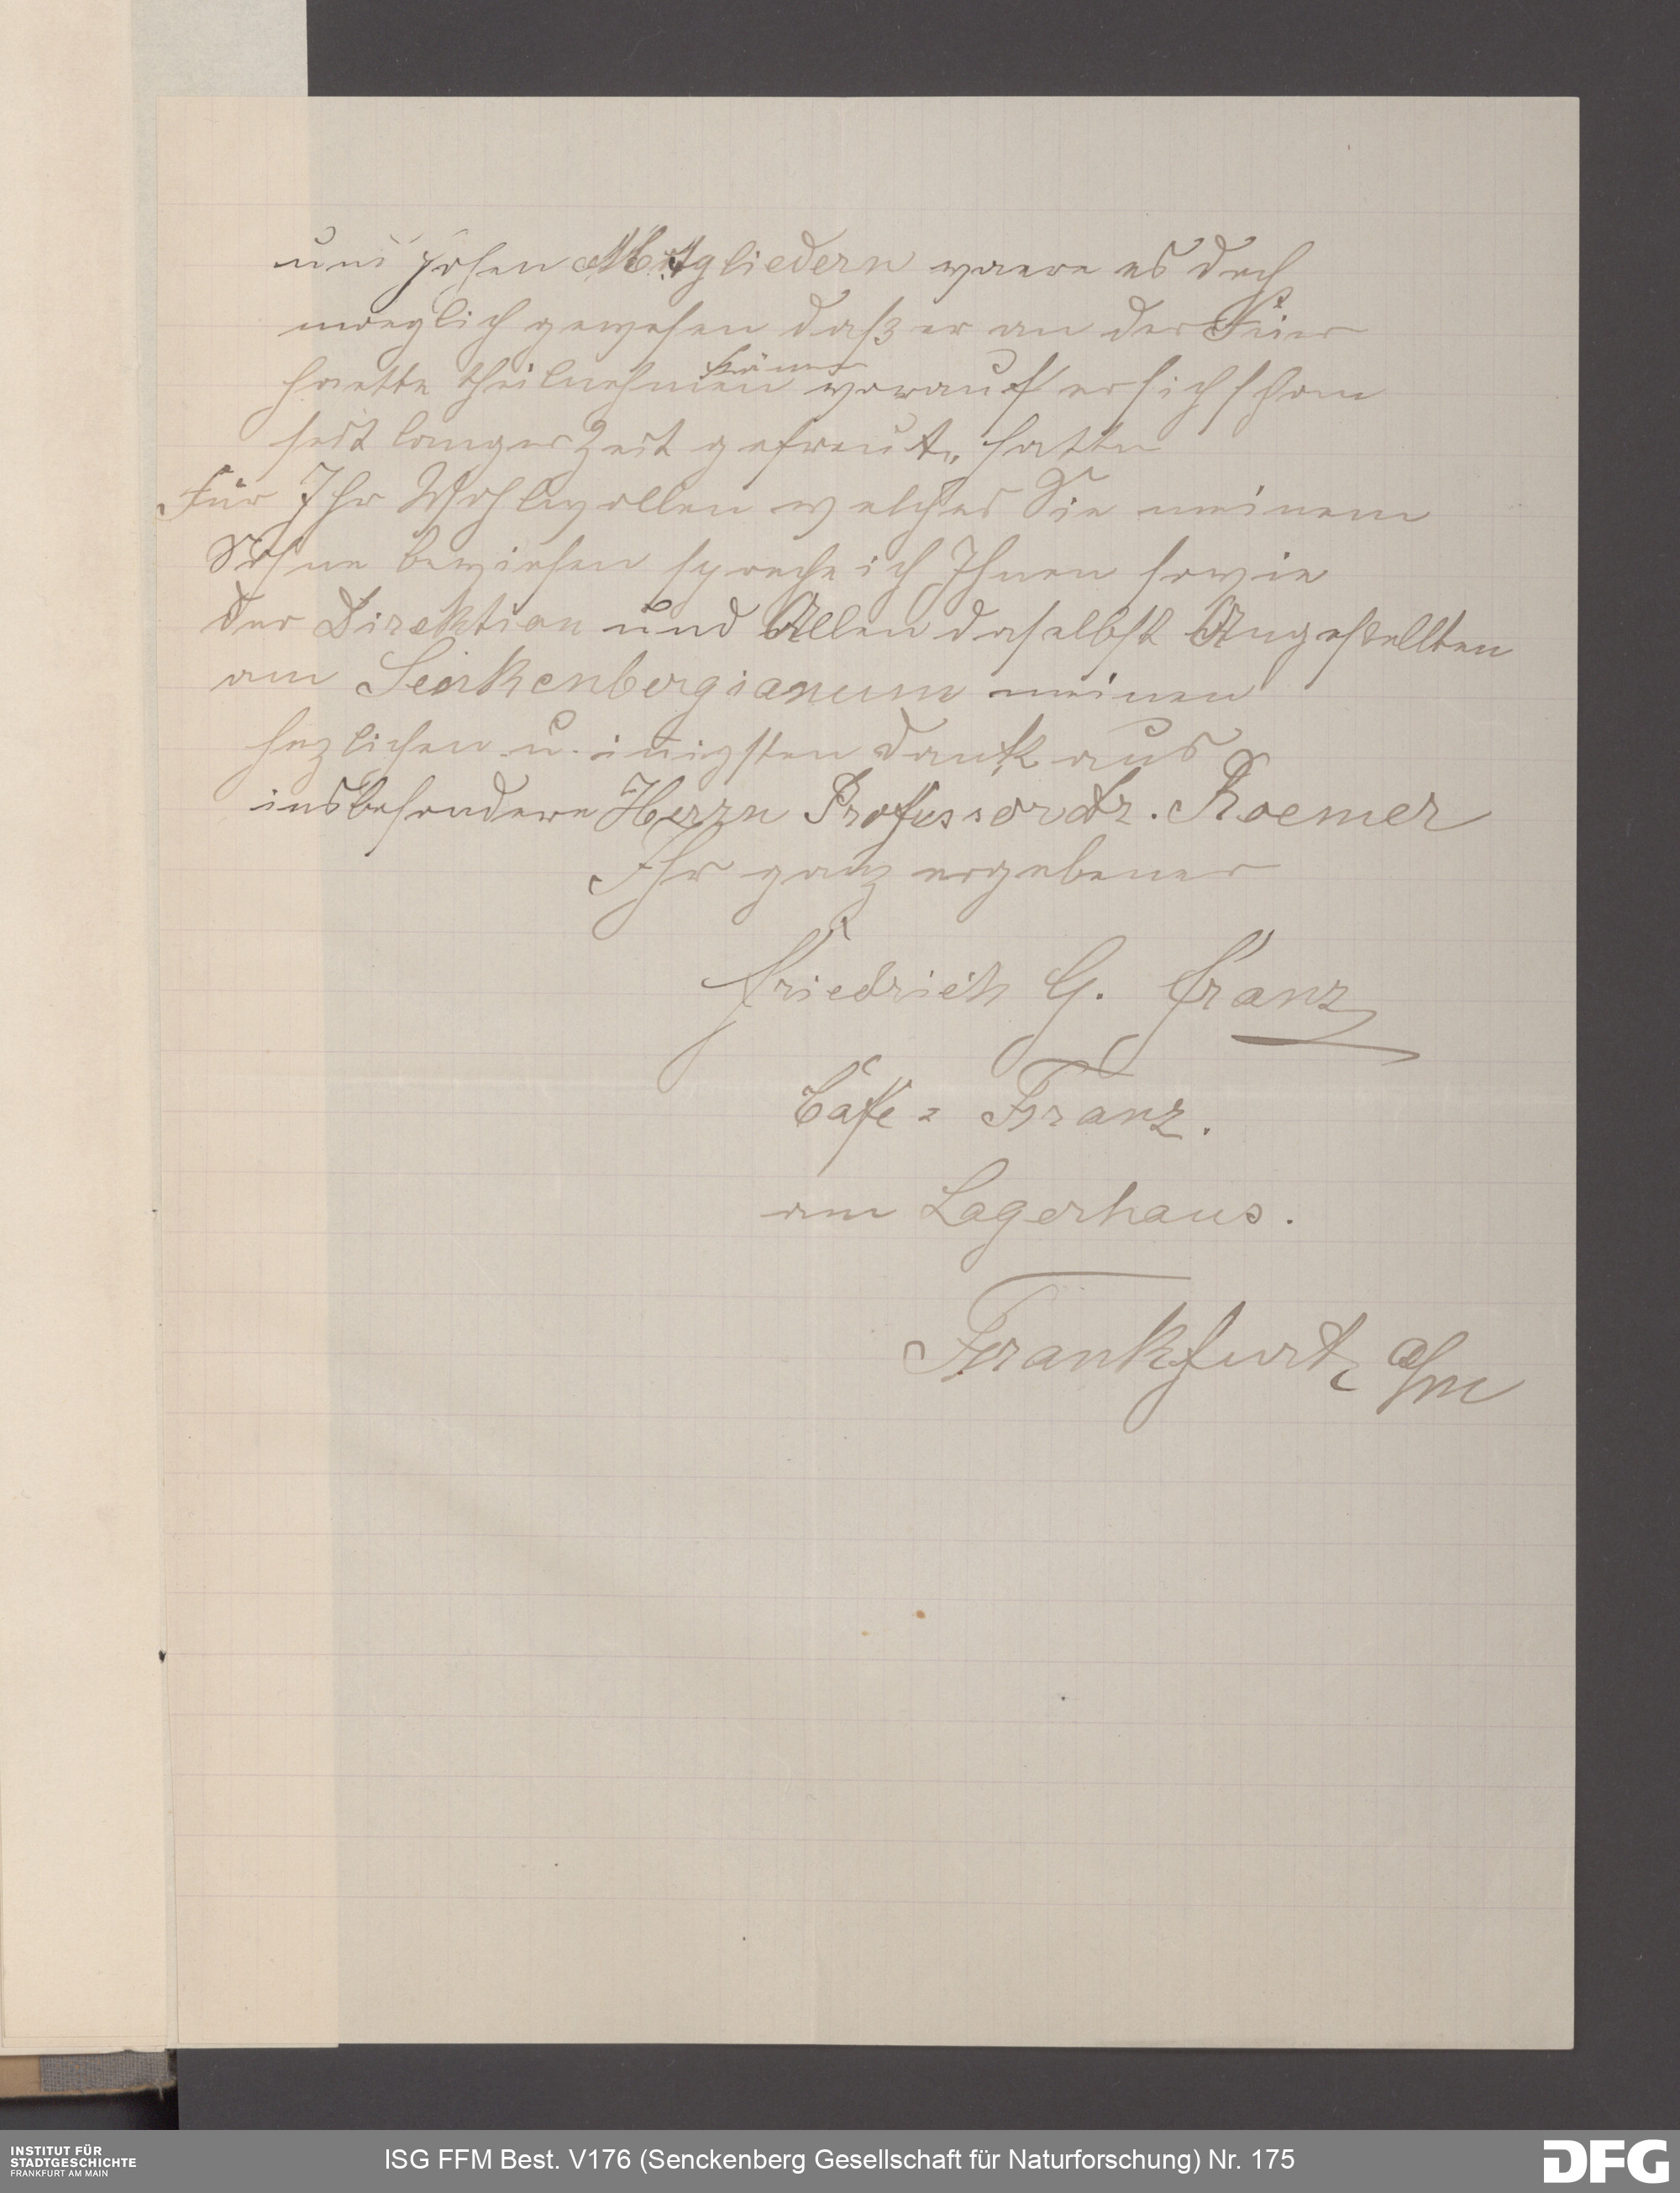 und hohen Mitgliedern waere es doch
moeglich gewesen daß er an der Feier
haette theilnehmen können worauf er sich schon
seit langer Zeit gefreut, hatte
Für Ihr Wohlwollen welches Sie meinem
Sohne bewiesen spreche ich Ihnen sowie
der Direktion und Allen daselbst Angestellten
am Senkenbergianum meinen
herzlichen u. innigsten Dank aus
insbesondere Herrn Professor dr. Roemer
Ihr ganz ergebener
Friedrich G. Franz
Cafe = Franz.
am Lagerhaus.
Frankfurt a/m
INSTITUT FÜR
STADTGESCHICHTE
FRANKFURT AM MAIN
ISG FFM Best. V176 (Senckenberg Gesellschaft für Naturforschung) Nr. 175
DFG